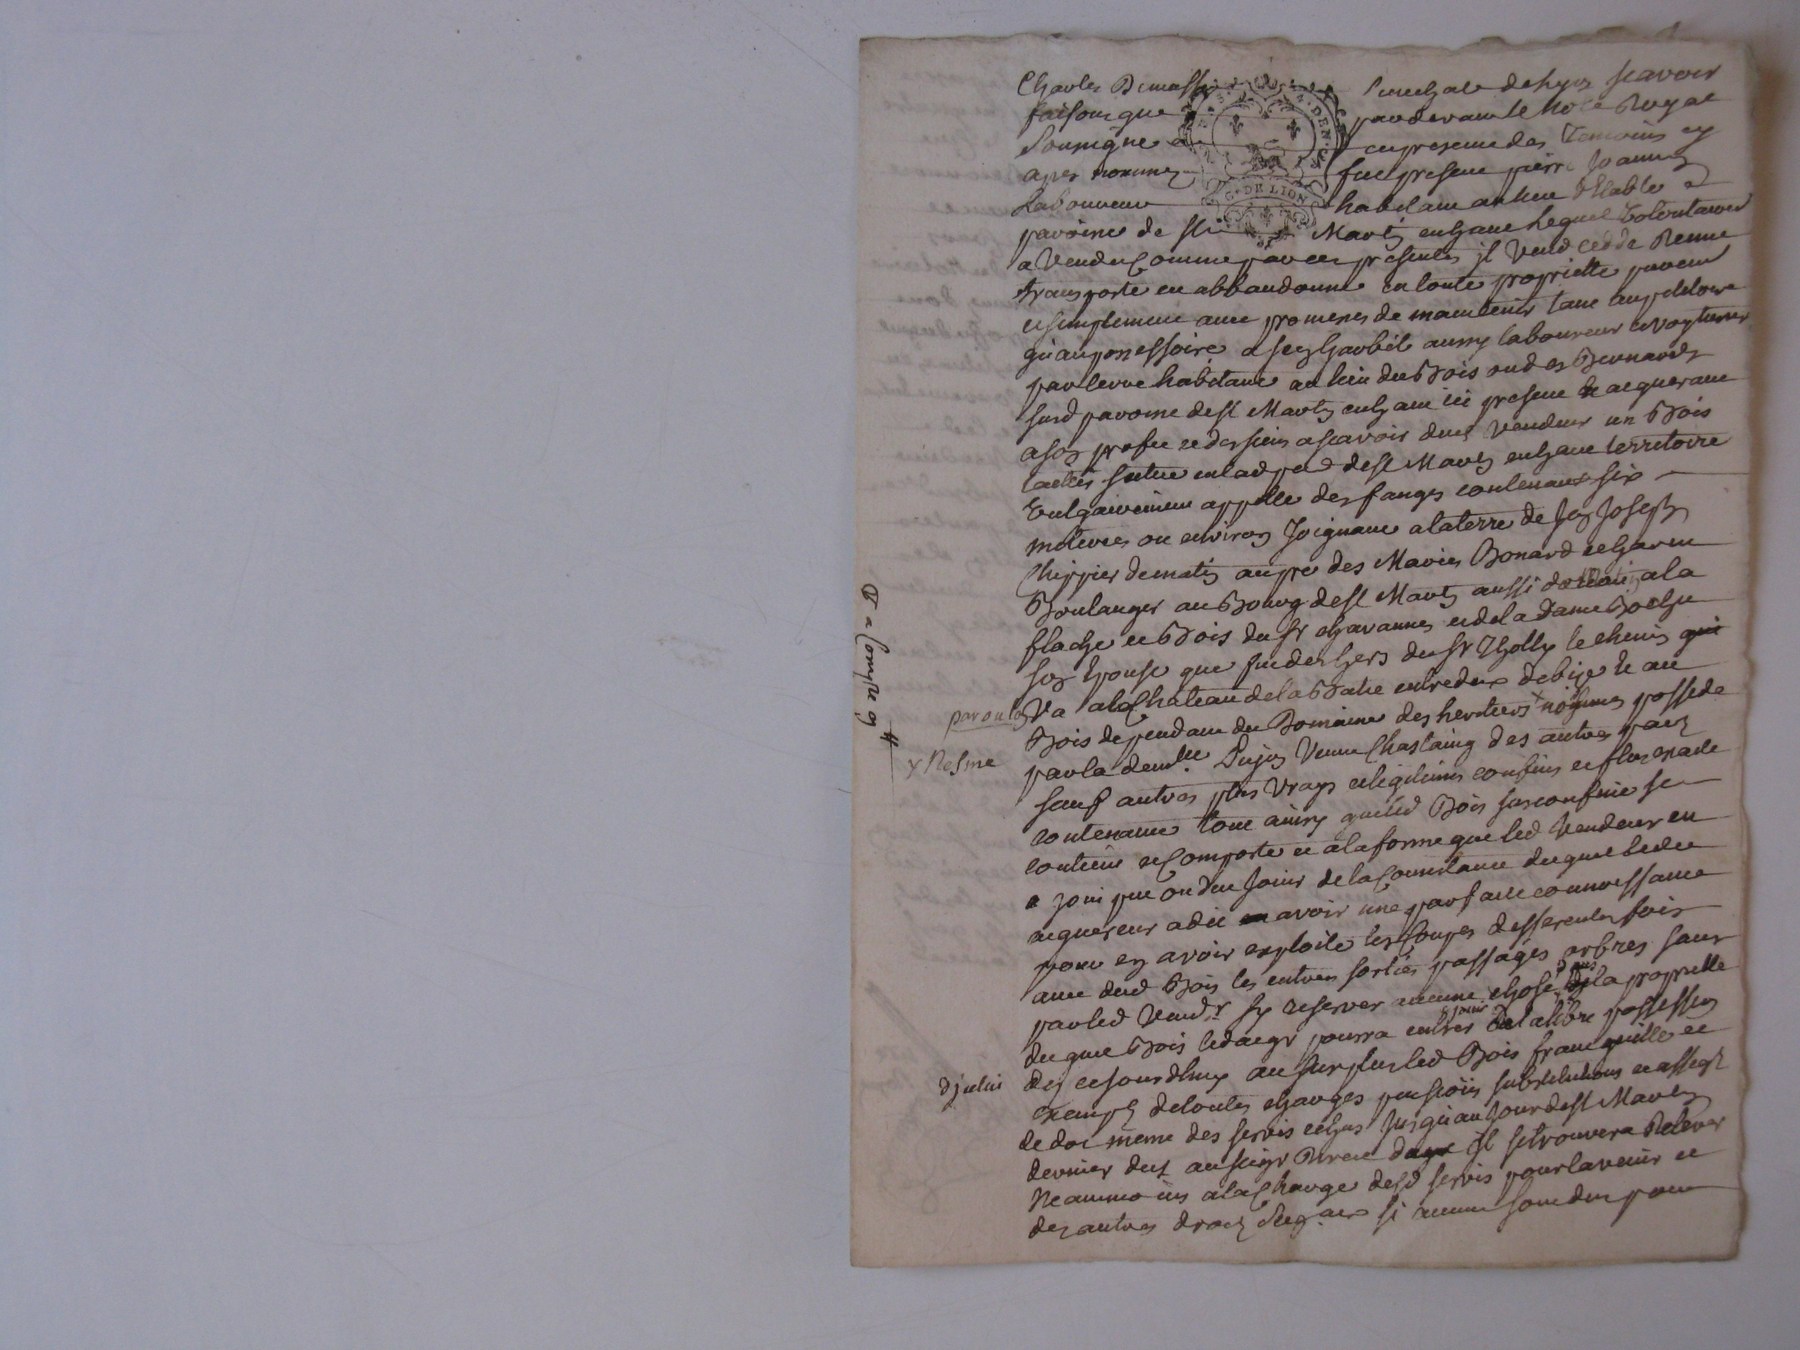 Charles Demasso senechal de lyon scavoir
faisons que pardevant le note Royal
soussigné et en presence des temoins cy
apres nommez fut present pierre Joannez
Laboureur habitant au lieu
paroisse de st Martin en haut lequel volontairemt
a Vendu comme par ces presentes il vend cedde Remet
transporte et abbandonne en toute propriette purement
et simplement avec promesses de maintenir tant au petitoire
qu'au possessoire a aussy laboureur et voyturier
par terre habitant au lieu du Bois ou des Bernards
susd paroisse de st Martin en haut icy present et acquerant
a son profit et des siens ascavoir dud vendeur un Bois
taillis situé en lad pse de st Martin en haut territoire
vulgairement appellé des fanges contenant six
meterées ou environ Joignant a la terre de Jean Joseph
Chippier de matin au pré des Maries Bonard et
Boulanger au Bourg de st Martin aussi de matin a la
flache et Bois du sr chavannes et de la Dame
son Epouse que fut des hers du sr Tholly le chemin qui
Va a la Chateau de la Batie entredeux de bize et au
Bois dependant du Domaine des heritiers nommes possedé
par la demlle Dujon Veuve Chastaing des autres parts
sauf autres plus vrays et legitimes confins et plus exacte
contenance tout ainsy que led Bois susconfiné se
contient et Comporte et a la forme que led Vendeur en
a joui pu ou du Jouir de la Consistance duquel led
acquereur a dit avoir une parfaite connoissance
pour en avoir exploité les Coupes differentes fois
avec dud Bois les entrées sorties passages arbres sans
par led Vendr s'y reserver aucune chose dans la propriette
duquel Bois led acqr pourra entrer et jouir libre possession
des ce jourdhuy au surplus led Bois franc quitte et
exempt de toutes charges pensions substitutions et
de dot meme des servis echus jusqu'au jour de st Martin
dernier dus au seigr Direct dont il se trouvera Relever
Neanmoins a la Charge desd servis pour lavenir et
des autres droits Seigaux si aucuns sont dus pour
par ou lon
x Nesme
djceluis